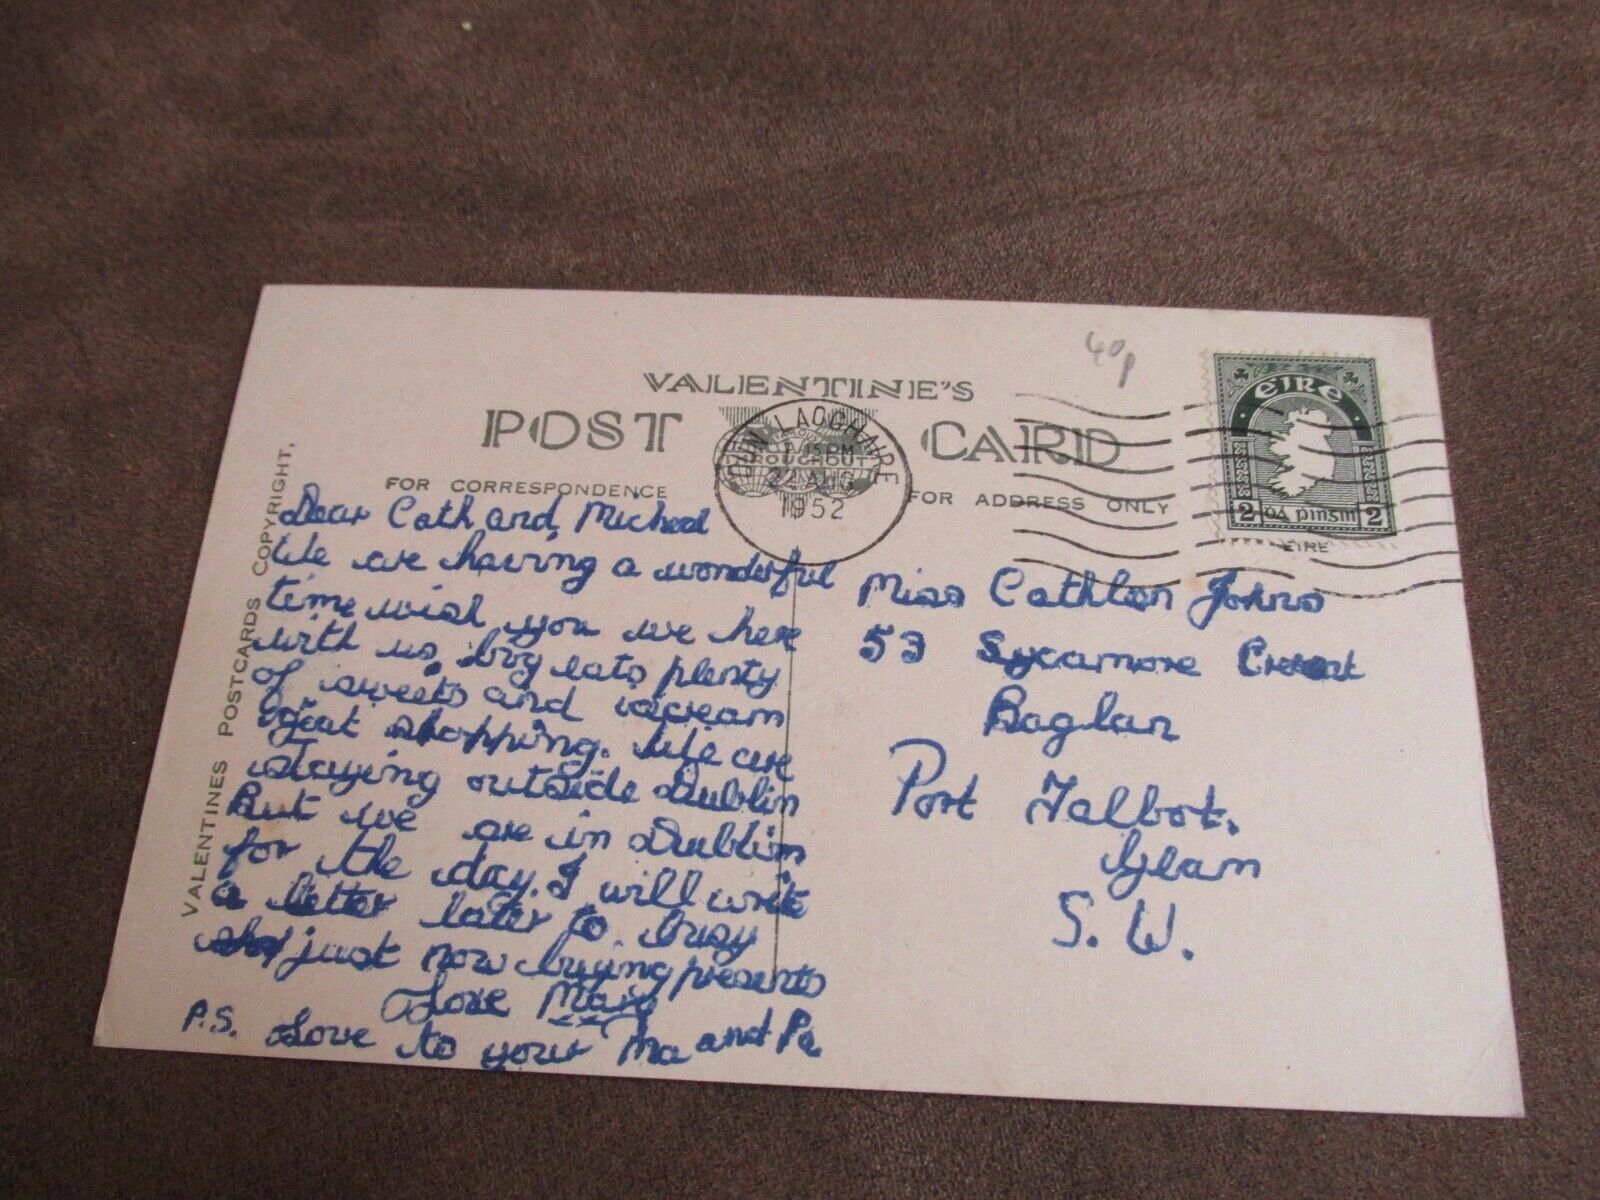 40p
VALENTINE'S
POST CARD
FOR CORRESPONDENCE
FOR ADDRESS ONLY
VALENTINES POSTCARDS COPYRIGHT.
DUN LAOGHAIRE
PM
22 AUG
1952
EIRE
2 2
DÁ PINSIN
EIRE
Dear Cath and Micheal
We are having a wonderful
time wish you we here
with us, big eats plenty
of sweets and icecream
great shopping. We are
staying outside Dublin
But we are in Dublin
for the day. I will write
a letter later to busy
just now buying presents
Love Mary
xxx
P.S. Love to your Ma and Pa
Miss Cathleen Johns
53 Sycamore Cresent
Baglan
Port Talbot.
Glam
S. W.